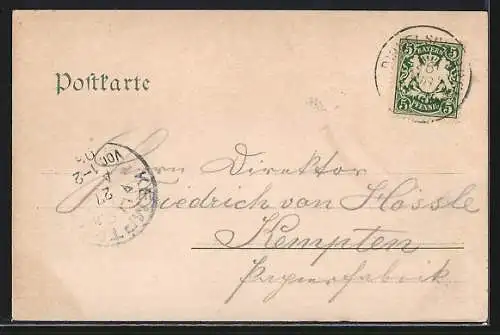 Postkarte
5 BAYERN 5
5 PFENNIG 5
KEMPT
Herrn Direktor
Friedrich von Hössle
Kempten
Papierfabrik